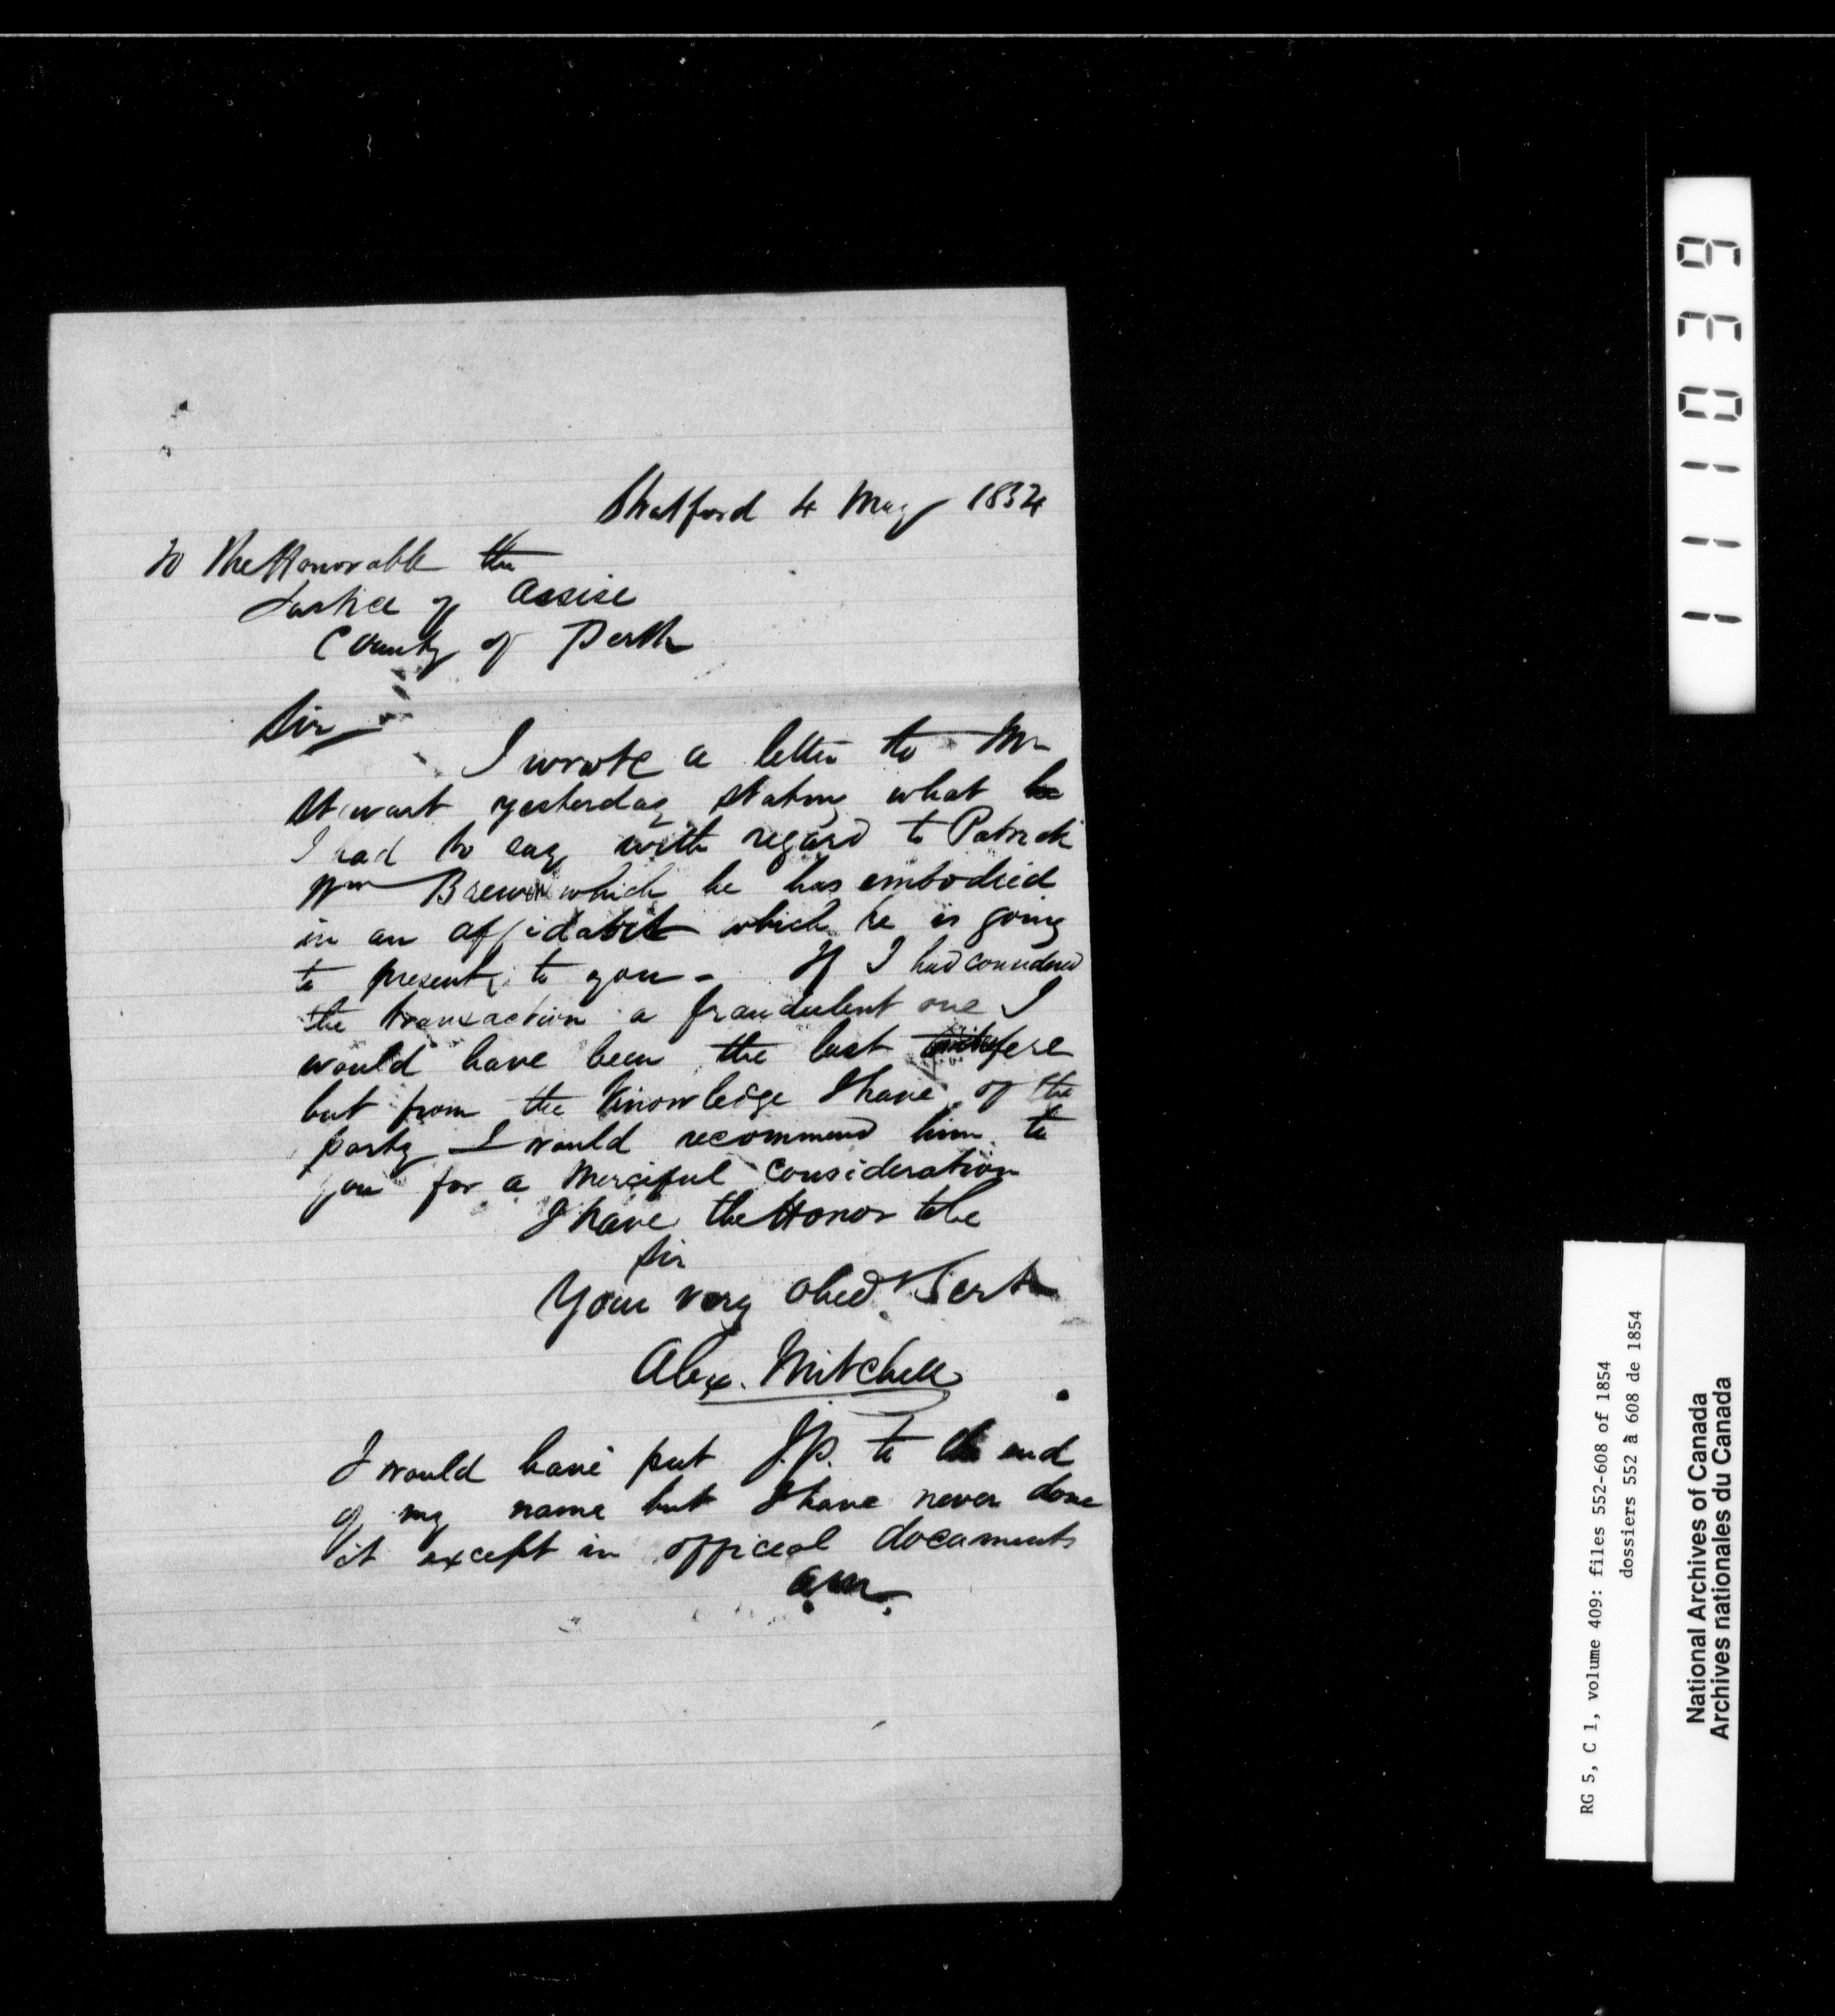 Stratford 4 May 1854
To The Honorable the
Justice of Assise
County of Perth
Sir
I wrote a letter to Mr
Stewart yesterday stating what he
I had to say with regard to Patrick
Wm Brewin which he has embodied
in an affidavit which he is going
to present to you - If I had considered
the transaction a fraudulent one I
would have been the last to interfere
but from the knowledge I have of the
party I would recommend him to
you for a merciful consideration
I have the Honor to be
Sir
Your very obed Sert
Alex. Mitchell
I would have put J.P. to the end
of my name but I have never done
it except in official documents
A.M.
111039
RG 5, C 1, volume 409: files 552-608 of 1854
dossiers 552 à 608 de 1854
National Archives of Canada
Archives nationales du Canada